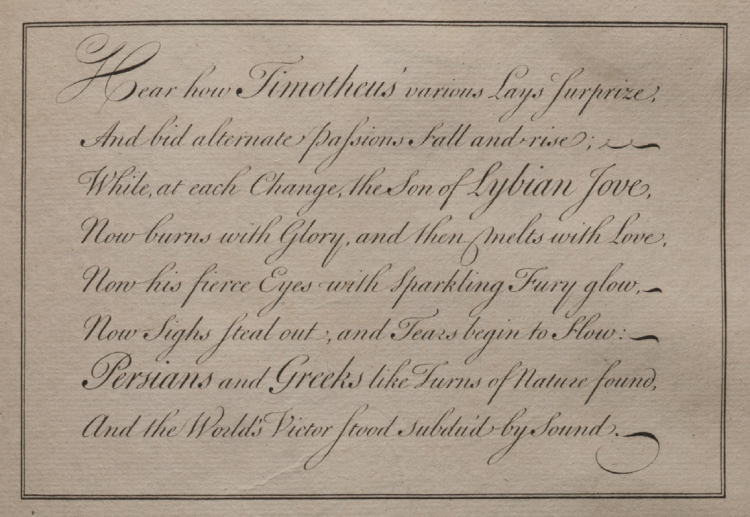 Hear how Timotheus' various Lays Surprize,
And bid alternate Paſsions Fall and rise;
While, at each Change, the Son of Lybian Jove,
Now burns with Glory, and then melts with Love,
Now his fierce Eyes with Sparkling Fury glow,
Now Sighs ſteal out, and Tears begin to Flow:
Persians and Greeks like Turns of Nature found,
And the World's Victor ſtood subdu'd by Sound.